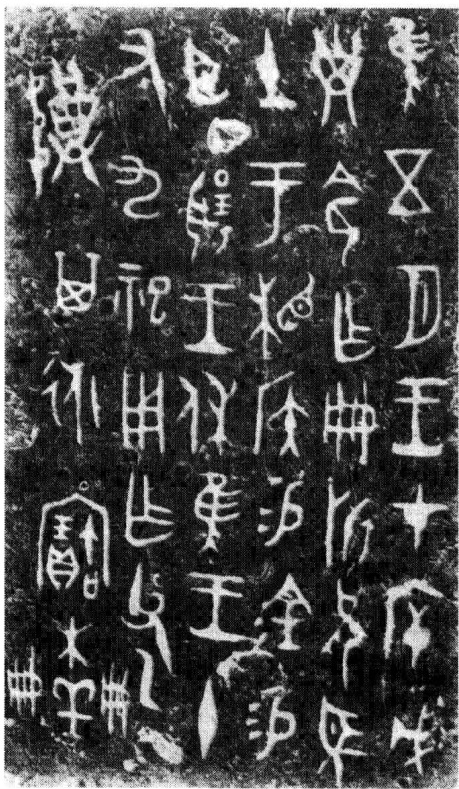 隹五月王才斥戊
子令乍冊折兄望
土于相侯易金易
臣揚王休隹王十
又九祀用乍父乙
尊其永寶木羊冊冊